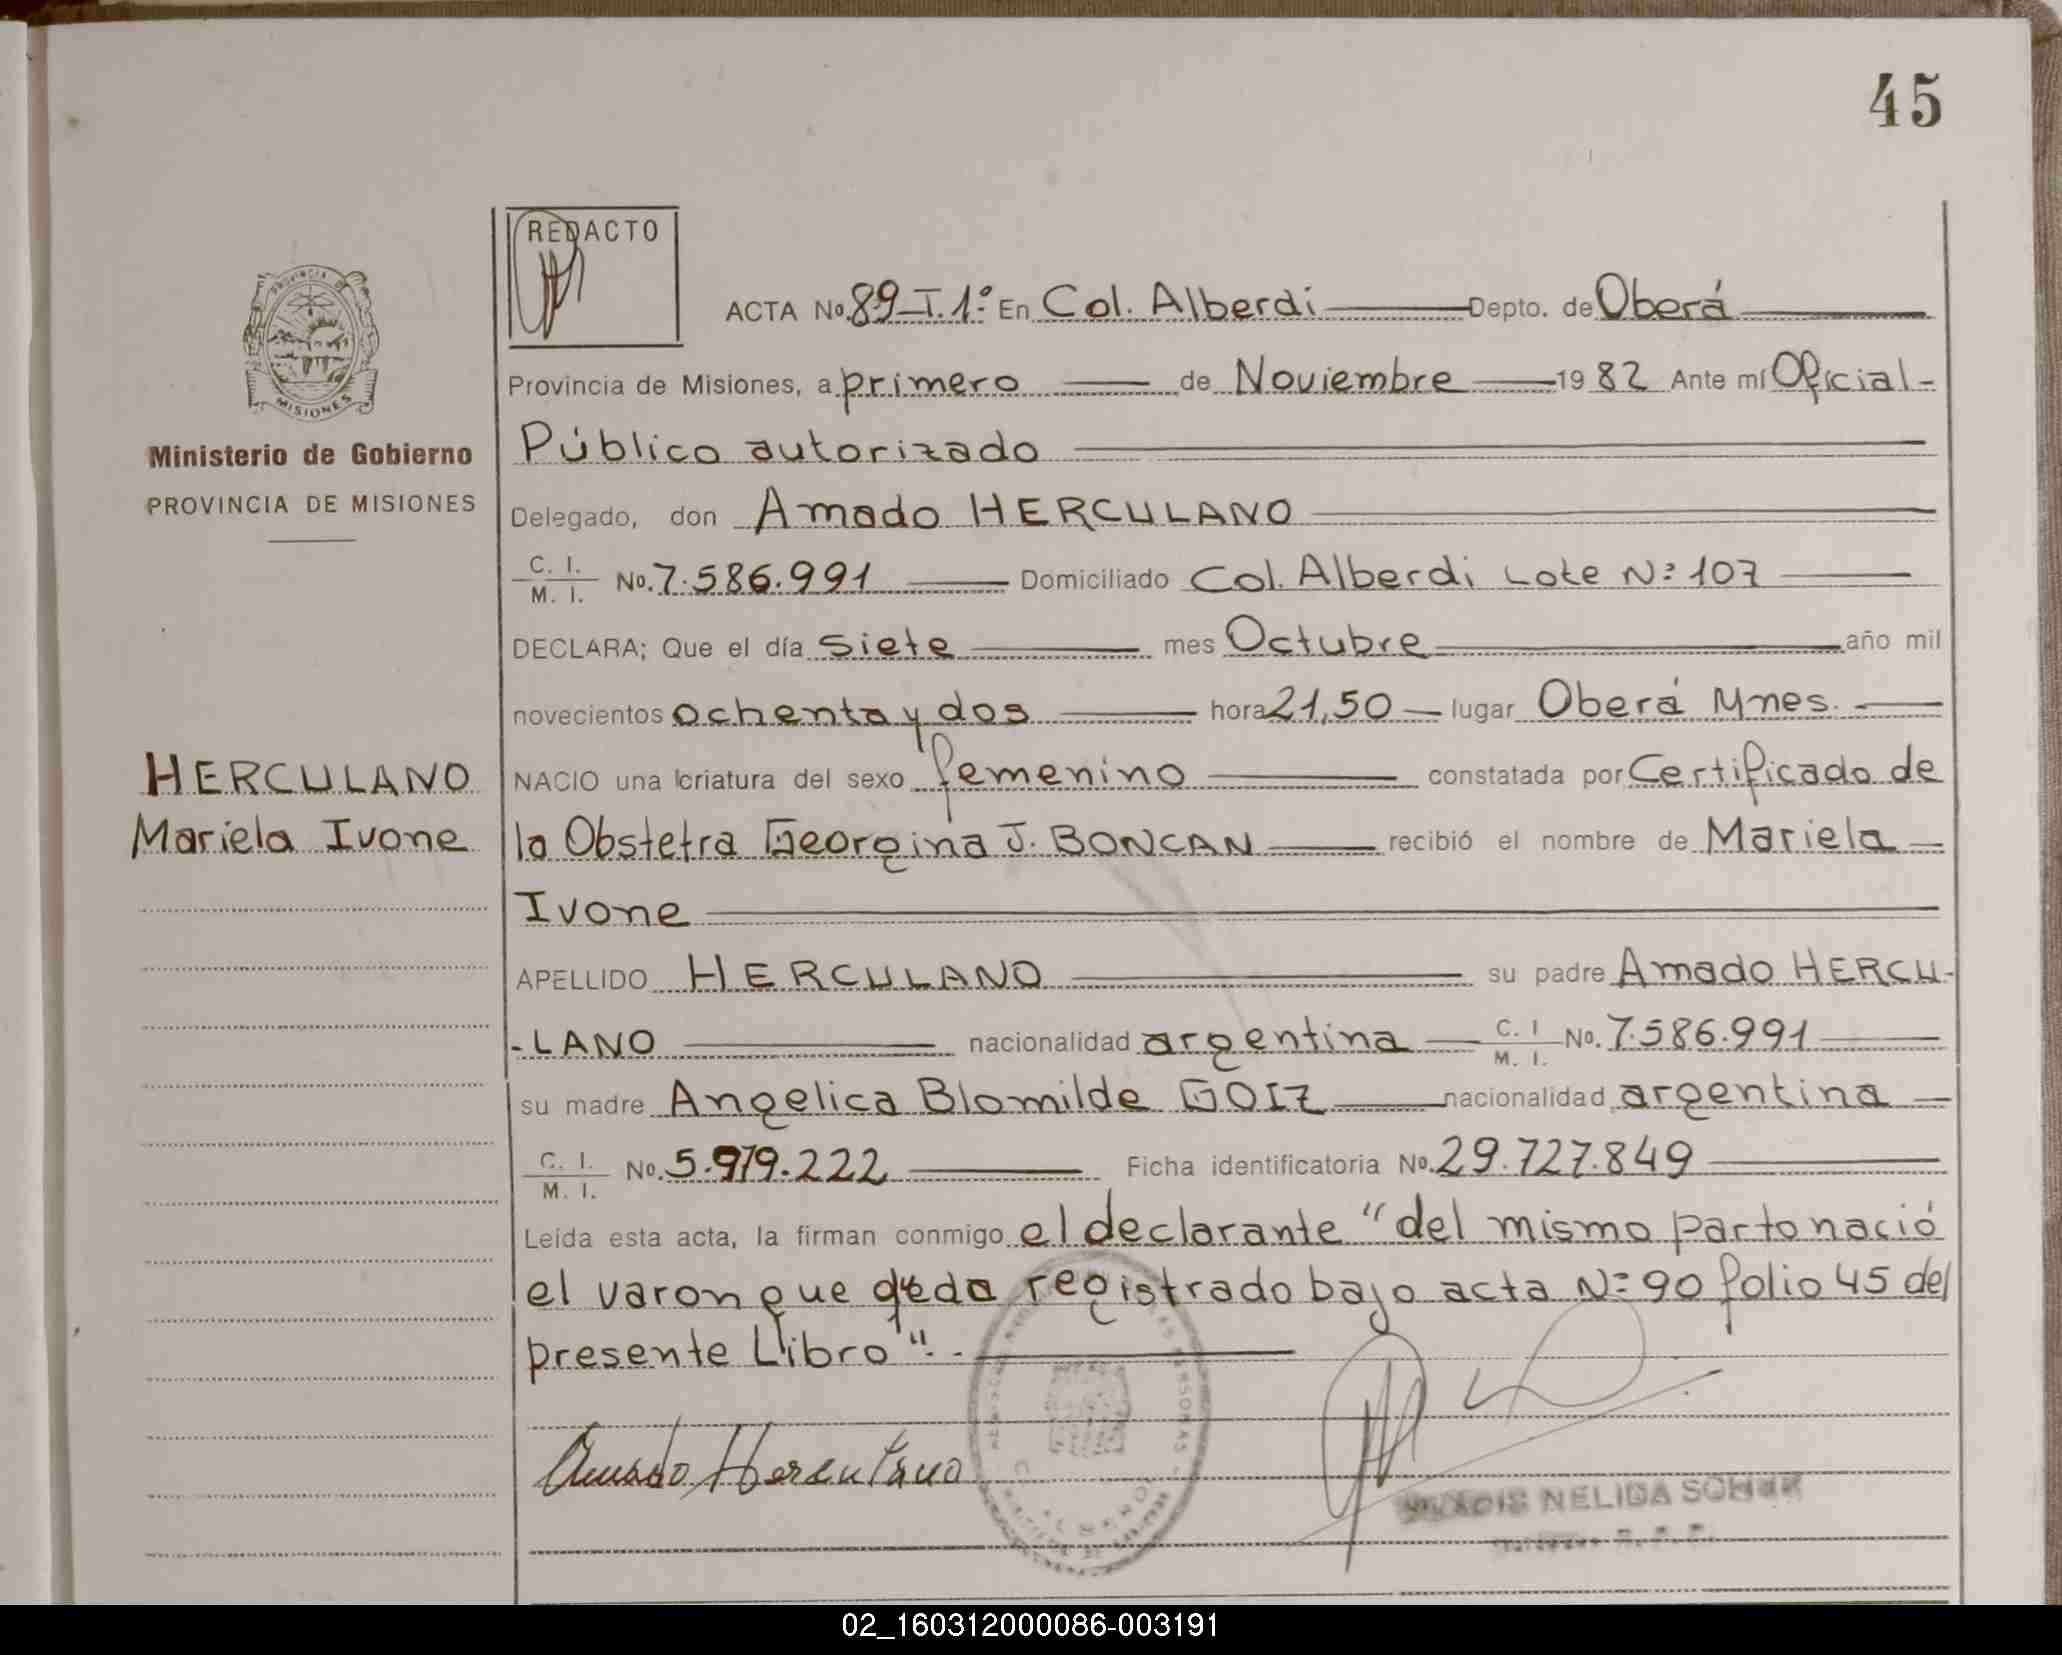 45
REDACTO
ACTA No. 89-T.1º En Col. Alberdi Depto. de Oberá
PROVINCIA DE
MISIONES
Provincia de Misiones, a primero de Noviembre 1982 Ante mí Oficial-
Ministerio de Gobierno
Público autorizado
PROVINCIA DE MISIONES
Delegado, don Amado HERCULANO
C. I.
M. I.
No. 7.586.991 Domiciliado Col. Alberdi Lote Nº 107
DECLARA; Que el día siete mes Octubre año mil
novecientos ochenta y dos hora 21,50 lugar Oberá Mnes.
HERCULANO
NACIO una criatura del sexo femenino constatada por Certificado de
Mariela Ivone
la Obstetra Georgina J. BONCAN recibió el nombre de Mariela
Ivone
APELLIDO HERCULANO su padre Amado HERCU-
-LANO nacionalidad argentina C. I M. I. No. 7.586.991
su madre Angelica Blomilde GOIZ nacionalidad argentina
C. I.
M. I.
No. 5.979.222 Ficha identificatoria No. 29.727.849
Leída esta acta, la firman conmigo el declarante "del mismo parto nació
el varon que queda registrado bajo acta Nº 90 folio 45 del
presente Libro".
Amado Herculano
NELIDA
02_160312000086-003191